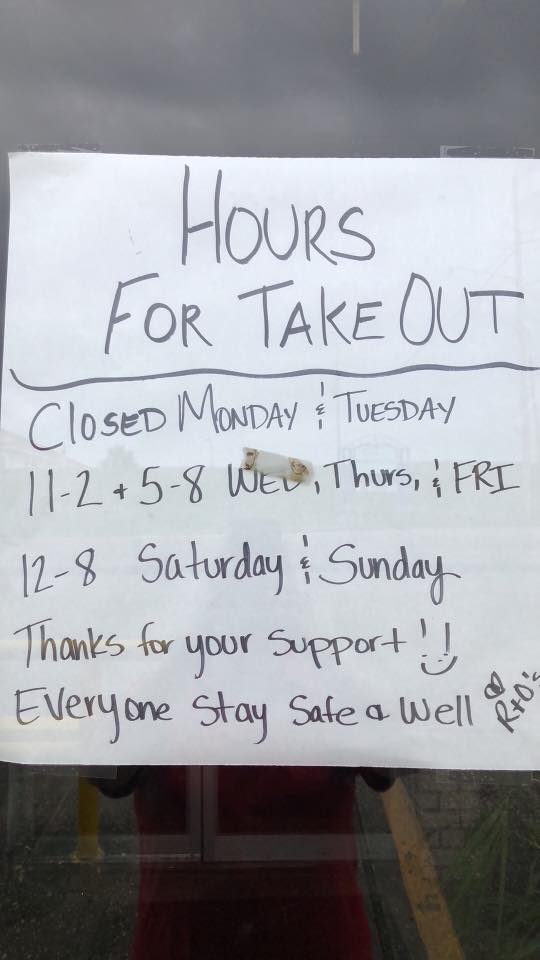 HOURS
FOR TAKE OUT
CLOSED MONDAY & TUESDAY
11-2 + 5-8 WED, Thurs, & FRI
12-8 Saturday & Sunday
Thanks for your Support!!
Everyone Stay Safe & Well
@ R+O's